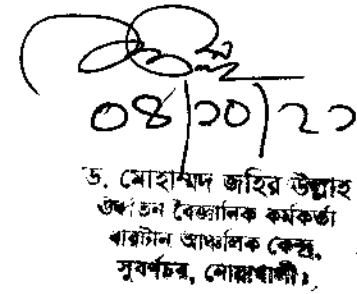 ০৪/১০/২১
ড. মোহাম্মদ জহির উল্লাহ
ঊর্ধ্বতন বৈজ্ঞানিক কর্মকর্তা
বারটান আঞ্চলিক কেন্দ্র,
সুবর্ণচর, নোয়াখালী।